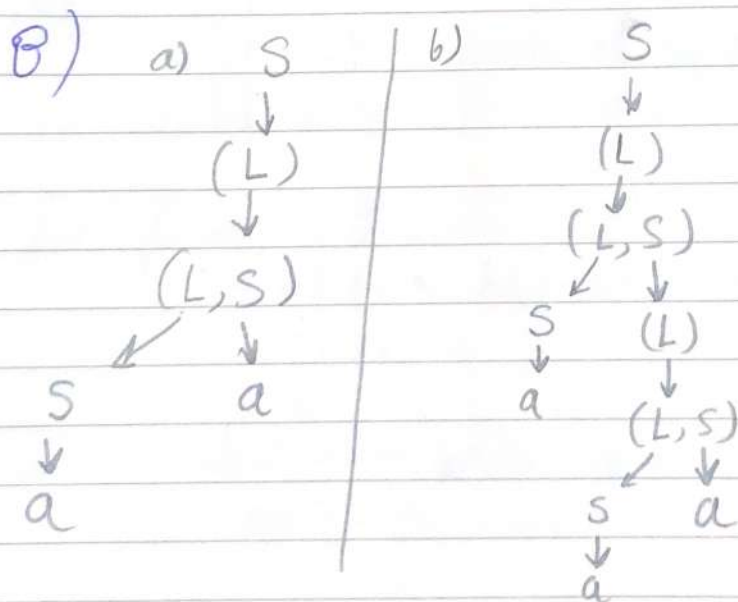 B) a) S
(L)
(L,S)
S a
a
b) S
(L)
(L,S)
S (L)
a (L,S)
S a
a